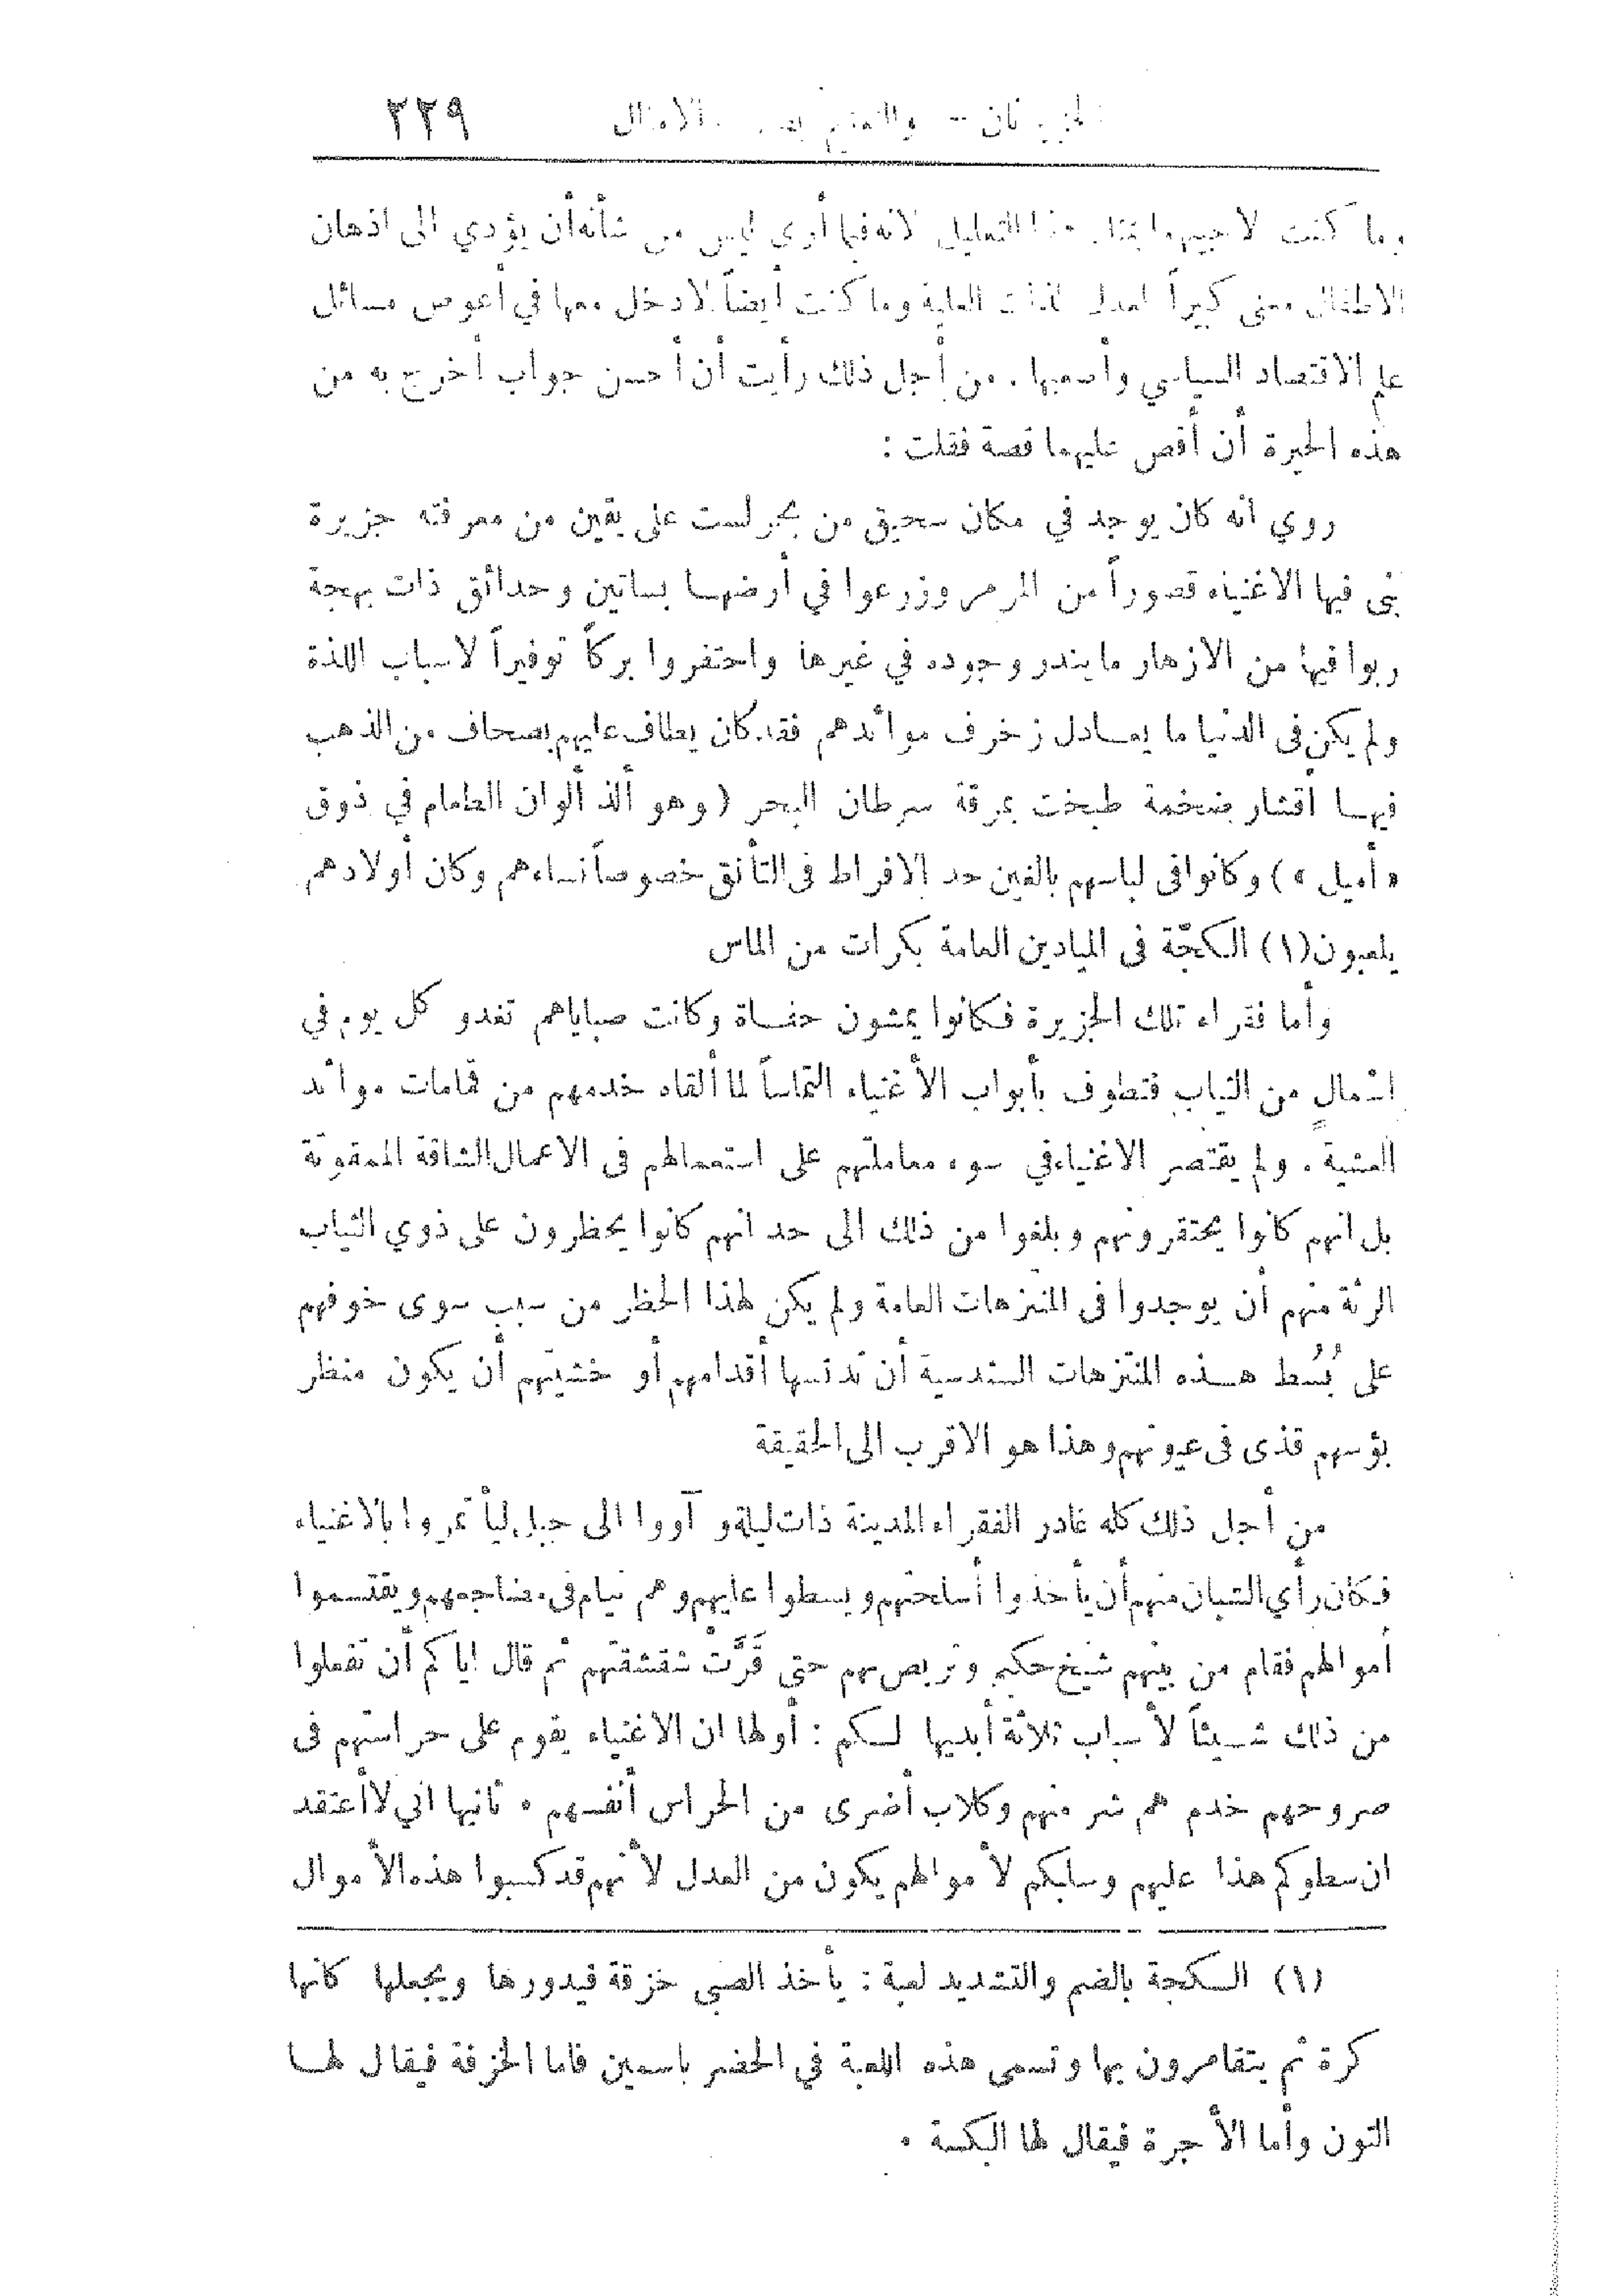 والتعليم الامثال ٢٢٩
وما كنت لاجيبهما بمثل هذا التعليل لانه فيما أرى ليس من شأنه أن يؤدي الى اذهان
الاطفال معنى كبيراً لعدل الذات العلية وما كنت أيضاً لادخل معها في أعوص مسائل
علم الاقتصاد السياسي وأصعبها . من أجل ذلك رأيت أن أحسن جواب أخرج به من
هذه الحيرة أن أقص عليهما قصة فقلت :
روي انه كان يوجد في مكان سحيق من بحر لست على يقين من معرفته جزيرة
بنى فيها الاغنياء قصوراً من المرمر وزرعوا في أرضها بساتين وحدائق ذات بهجة
ربوا فيها من الازهار ما يندر وجوده في غيرها واحتفروا بركاً توفيراً لاسباب اللذة
ولم يكن فى الدنيا ما يعادل زخرف موائدهم فقد كان يطاف عليهم بصحاف من الذهب
فيها أقشار ضخمة طبخت بمرقة سرطان البحر (وهو ألذ ألوان الطعام في ذوق
«أميل») وكانوا فى لباسهم بالغين حد الافراط فى التأنق خصوصاً نساءهم وكان أولادهم
يلعبون (١) الكجّة فى الميادين العامة بكرات من الماس
وأما فقراء تلك الجزيرة فكانوا يمشون حفاة وكانت صباياهم تغدو كل يوم في
اسمالٍ من الثياب فتطوف بأبواب الأغنياء التماساً لما ألقاه خدمهم من قمامات موائد
العشية . ولم يقتصر الاغنياء في سوء معاملتهم على استعمالهم فى الاعمال الشاقة الممقوتة
بل انهم كانوا يحتقرونهم وبلغوا من ذلك الى حد انهم كانوا يحظرون على ذوي الثياب
الرثة منهم أن يوجدوا فى المتنزهات العامة ولم يكن لهذا الحظر من سبب سوى خوفهم
على بُسُط هذه المتنزهات السندسية أن تدنسها أقدامهم أو خشيتهم أن يكون منظر
بؤسهم قذى فى عيونهم وهذا هو الاقرب الى الحقيقة
من أجل ذلك كله غادر الفقراء المدينة ذات ليلة و آووا الى جبل ليأتمروا بالاغنياء
فكان رأي الشبان منهم أن يأخذوا أسلحتهم ويسطوا عليهم وهم نيام فى مضاجعهم ويقتسموا
أموالهم فقام من بينهم شيخ حكيم وتربص بهم حتى قَرَّتْ شقشقتهم ثم قال اياكم أن تفعلوا
من ذلك شيئاً لأسباب ثلاثة أبديها لكم : أولها ان الاغنياء يقوم على حراستهم فى
صروحهم خدم هم شر منهم وكلاب أضرى من الحراس أنفسهم . ثانيها اني لا أعتقد
ان سطوكم هذا عليهم وسلبكم لأموالهم يكون من العدل لأنهم قد كسبوا هذه الأموال
(١) الكجة بالضم والتشديد لعبة : يأخذ الصبي خزقة فيدورها ويجعلها كأنها
كرة ثم يتقامرون بها وتسمى هذه اللعبة في الحضر باسمين فاما الخزفة فيقال لها
التون وأما الأجرة فيقال لها البكسة .